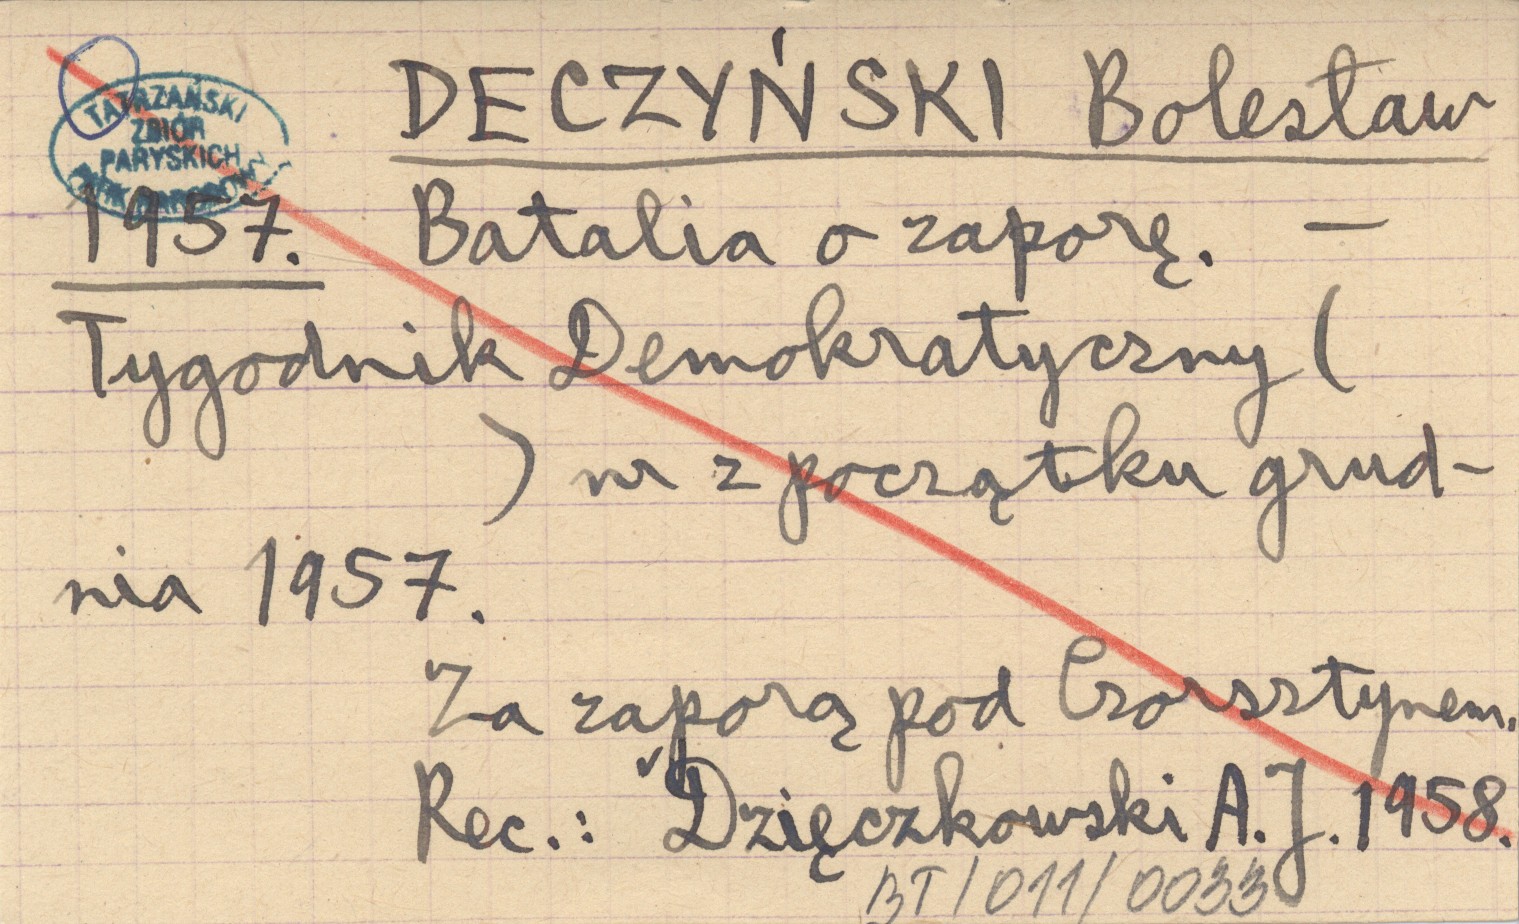 DECZYŃSKI Bolesław
TATRZAŃSKI
ZBIÓR
PARYSKICH
1957. Batalia o zaporę. —
Tygodnik Demokratyczny (
) nr z początku grud-
nia 1957.
Za zaporą pod Czorsztynem.
Rec.: Dzięczkowski A.J. 1958.
BT/011/0033